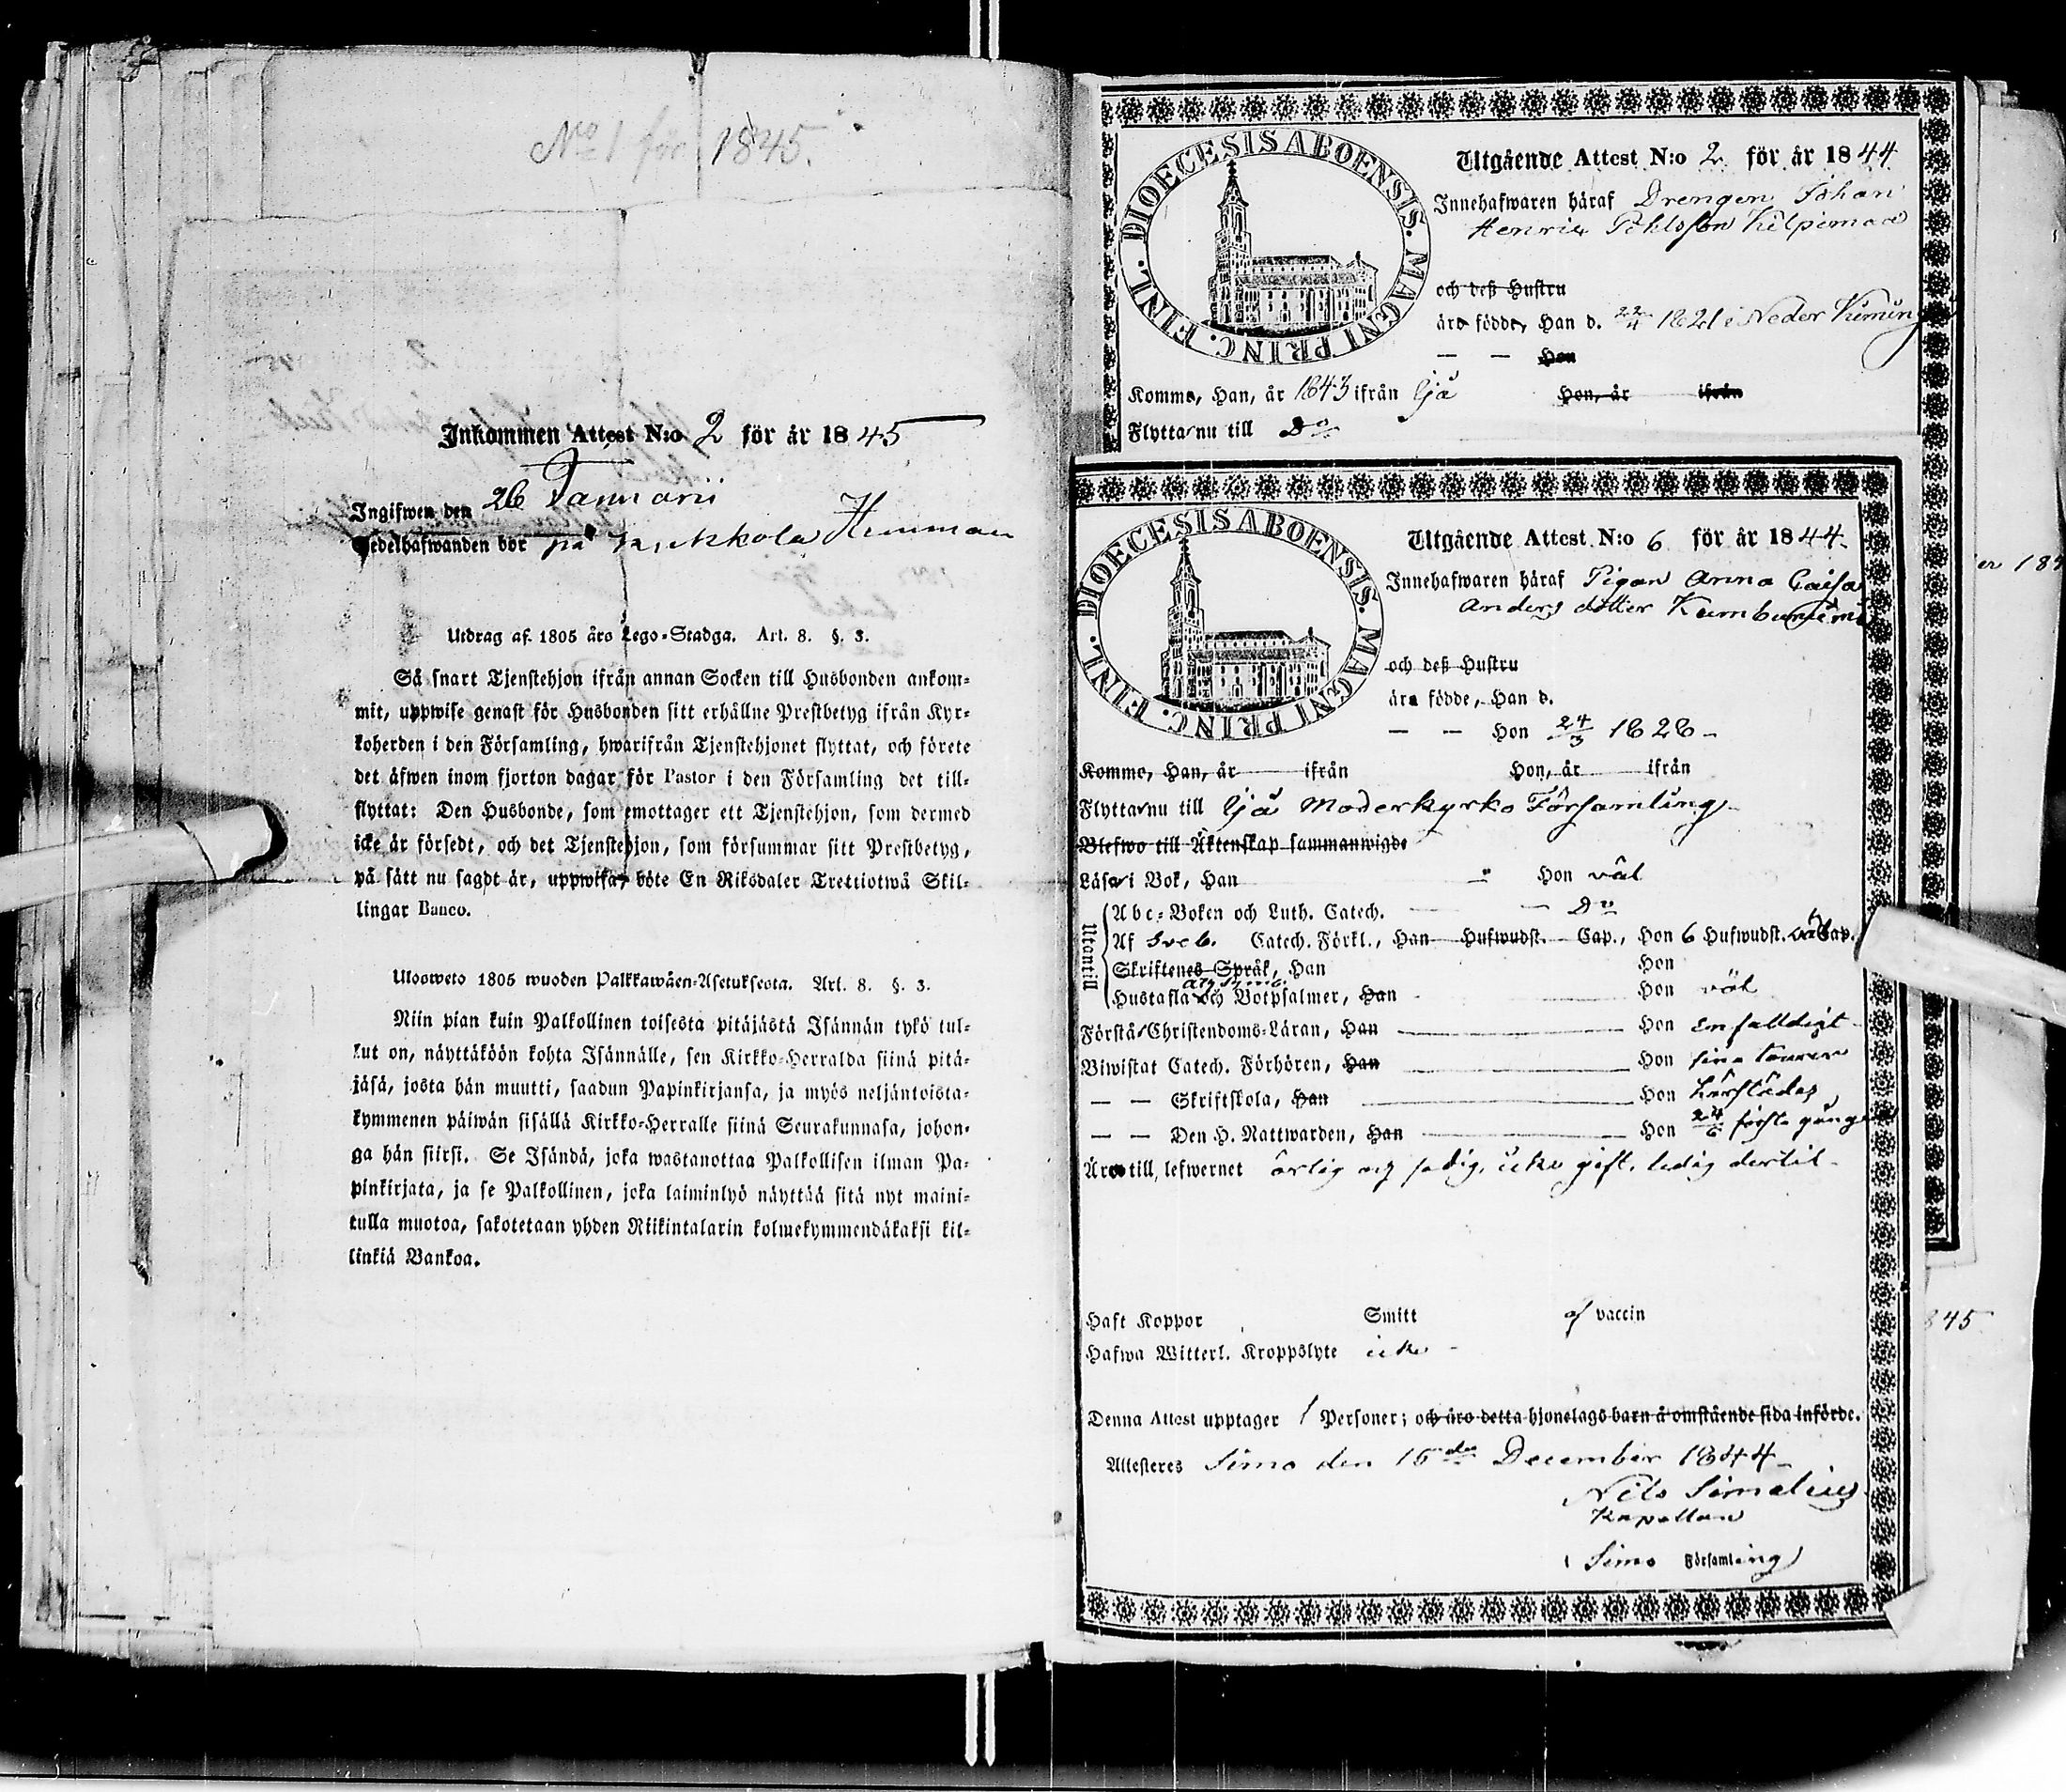 No 1 för 1845.
Inkommen Attest N:o 2 för år 1845
Ingifwen den 26 Januarii
Sedelhafwanden bor på Kukkola Hemman
Utdrag af 1805 års Lego-Stadga. Art. 8. §. 3.
Så snart Tjenstehjon ifrån annan Socken till Husbonden ankom-
mit, uppwise genast för Husbonden sitt erhållne Prestbetyg ifrån Kyr-
koherden i den Församling, hwarifrån Tjenstehjonet flyttat, och förete
det äfwen inom fjorton dagar för Pastor i den Församling det till-
flyttat: Den Husbonde, som emottager ett Tjenstehjon, som dermed
icke är försedt, och det Tjenstehjon, som försummar sitt Prestbetyg,
på sätt nu sagdt är, uppwisa, böte En Riksdaler Trettiotwå Skil-
lingar Banco.
Ulosweto 1805 wuoden Palkkawäen-Asetuksesta. Art. 8. §. 3.
Niin pian kuin Palkollinen toisesta pitäjästä Isännän tykö tul-
lut on, näyttäköön kohta Isännälle, sen Kirkko-Herralda siinä pitä-
jäsä, josta hän muutti, saadun Papinkirjansa, ja myös neljäntoista-
kymmenen päiwän sisällä Kirkko-Herralle siinä Seurakunnasa, johon-
ga hän siirsi. Se Isändä, joka wastanottaa Palkollisen ilman Pa-
pinkirjata, ja se Palkollinen, joka laiminlyö näyttää sitä nyt maini-
tulla muotoa, sakotetaan yhden Riikintalarin kolmekymmendäkaksi kil-
linkiä Bankoa.
DIOECESIS ABOENSIS. MAGNI PRINC. FINL.
Utgående Attest N:o 2 för år 1844
Innehafwaren häraf Drengen Johan
Henric Pehlsson Kilpimaa
och deß Hustru
äro födde, Han d. 22/4 1821 i Neder Kiming
— — Hon
Komme, Han, år 1843 ifrån Ijå Hon, år ifrån
Flytta nu till Do
DIOECESIS ABOENSIS. MAGNI PRINC. FINL.
Utgående Attest N:o 6 för år 1844.
Innehafwaren häraf Pigan Anna Caisa
Anders dotter
och deß Hustru
äro födde, Han d.
— — Hon 24/3 1828
Komme, Han, år ifrån Hon, år ifrån
Flytta nu till Ijå Moderkyrko Församling
Blefwo till Äktenskap sammanwigde
Läsa i Bok, Han Hon väl
Utantill
Abc-Boken och Luth. Catech. — Do
Af Sveb. Catech. Förkl., Han Hufwudst. Cap., Hon 6 Hufwudst. Cap.
Skriftenes Språk, Han Hon
Hustafla och Botpsalmer, Han Hon väl
Förstå Christendoms-Läran, Han Hon enfalldigt
Biwistat Catech. Förhören, Han Hon sina
— — Skriftskola, Han Hon härstädes
— — Den H. Nattwarden, Han Hon 24/6 första gången
Äro till lefwernet ärlig och sedig, icke gift, ledig dertil
Haft Koppor Smitt af vaccin
Hafwa Witterl. Kroppslyte icke
Denna Attest upptager 1 Personer; och äro detta hjonelags barn å omstående sida införde.
Attesteres Simo den 15de December 1844
Nils Simelius
Kapellan
( Simo Församling)
845